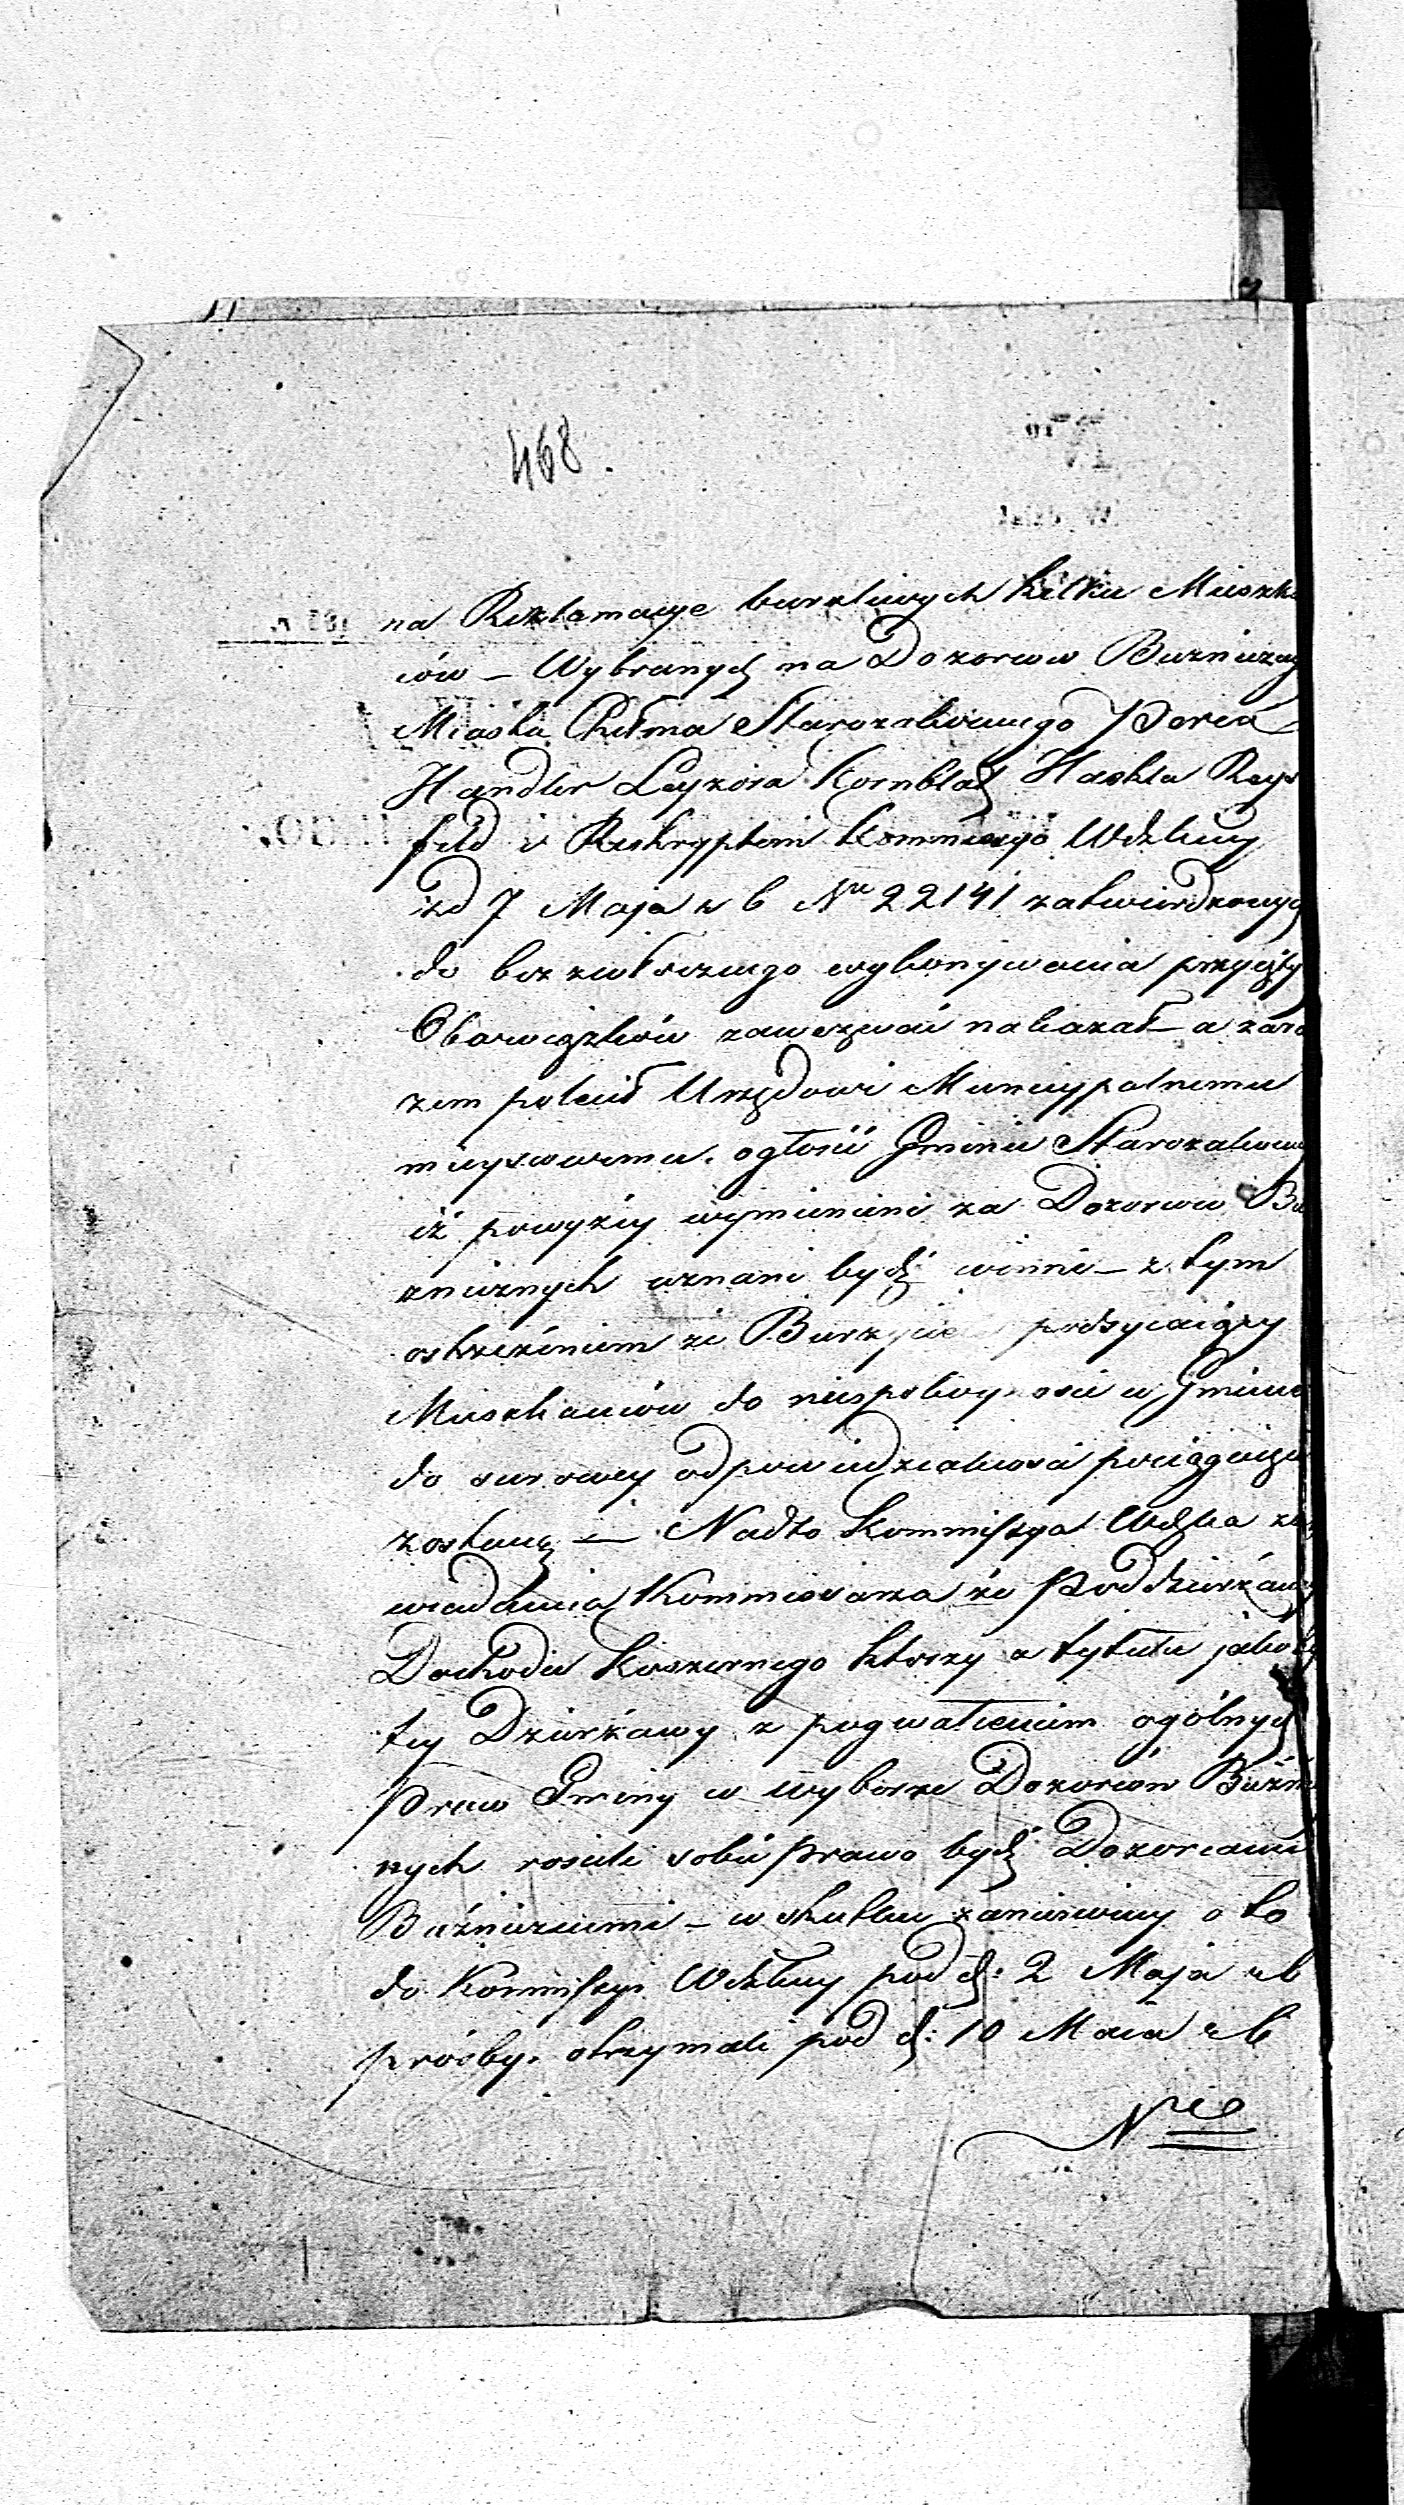 468.
na Reklamacye burzliwych kilku Mieszka
ców – Wybranych na Dozorców Bużniczny
Miasta Chełma Starozakonnego
Handler Leyzora Kornblat Haskla Reys
feld i Reskryptem Kommissyi Wdzkiey
zd 7 Maja r b Nro 22141 zatwierdzonych
do bezzwłocznego wykonywania przyięty
Obowiązków zawezwać nakazał – a zara
zem polecił Urzędowi Municypalnemu
mieyscowemu ogłosić Gminie Starozakonn
iż powyżey wymienieni za Dozorców Bu
żnicznych uznani bydź winni – z tym
ostrzeżeniem że Burzyciele podżegaiący
Mieszkańców do niespokoyności w Gminie
do surowey odpowiedzialności pociągnięci
zostaną – Nadto Kommissya Wdzka za
wiadamia Kommissarza że Poddzierżawcy
Dochodu koszernego którzy z tytułu jakoby
tey Dzierżawy z pogwałceniem ogólnych
Praw Gminy w wyborze Dozorców Bużni
nych rościli sobie prawo bydź Dozorcami
Bużniczemi – w skutku zaniesioney o to
do Kommissyi Wdzkiey pod d: 2 Maja r b
prośby otrzymali pod d: 10 Maia r b